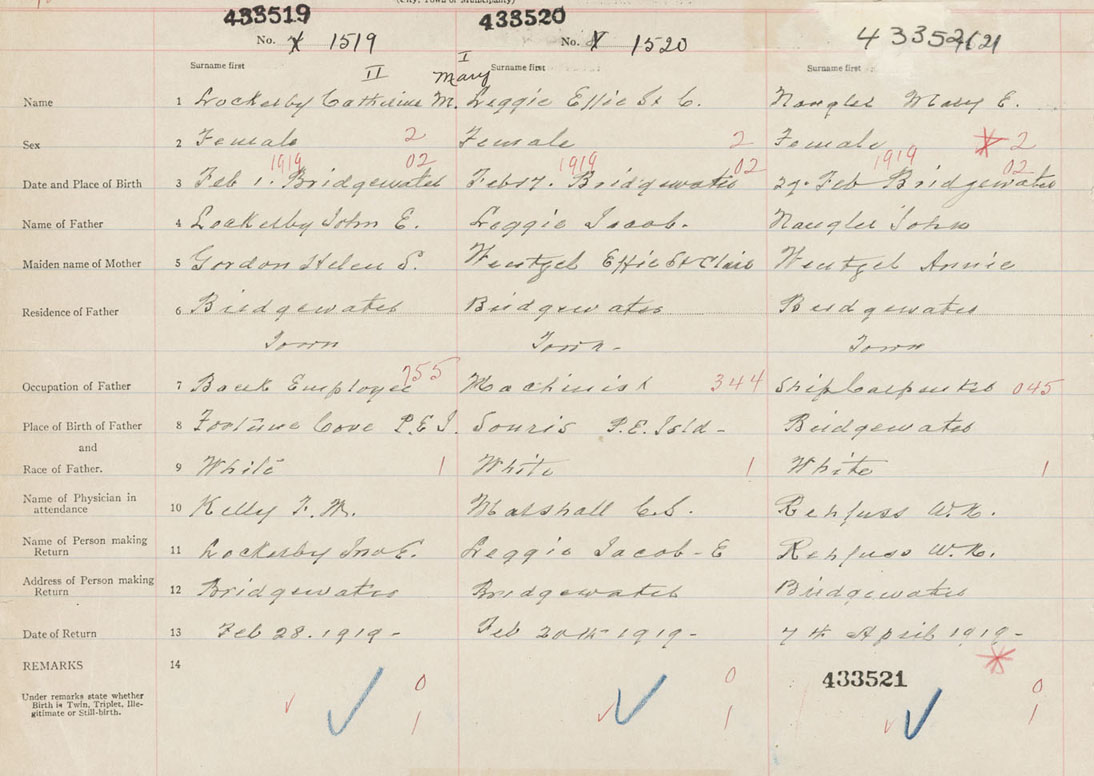 (City, Town or Municipality)
433519 433520
No. X 1519 No. X 1520 433521 21
Surname first II I Mary Surname first Surname first
Name 1 Lockerby Catherine M. Leggie Effie St C. Naugler Mary E.
Sex 2 Female 2 Female 2 Female 2
1919 02 1919 02 1919 02
Date and Place of Birth 3 Feb 1. Bridgewater Feb 17. Bridgewater 27. Feb Bridgewater
Name of Father 4 Lockerby John E. Leggie Jacob. Naugler John
Maiden name of Mother 5 Gordon Helen S. Wentzel Effie St Clair Wentzel Annie
Residence of Father 6 Bridgewater Bridgewater Bridgewater
Town Town - Town
Occupation of Father 7 Bank Employee 755 Machinist 344 Ship Carpenter 045
Place of Birth of Father 8 Fortune Cove P.E.I. Souris P.E. Isld - Bridgewater
and
Race of Father. 9 White 1 White 1 White 1
Name of Physician in
attendance 10 Kelly F. W. Marshall C.S. Rehfuss W.N.
Name of Person making
Return 11 Lockerby Jno E. Leggie Jacob - E Rehfuss W.N.
Address of Person making
Return 12 Bridgewater Bridgewater Bridgewater
Date of Return 13 Feb 28. 1919 - Feb 20th 1919 - 7th April 1919 -
REMARKS 14
433521
Under remarks state whether
Birth is Twin, Triplet, Ille-
gitimate or Still-birth.
0 0 0
1 1 1